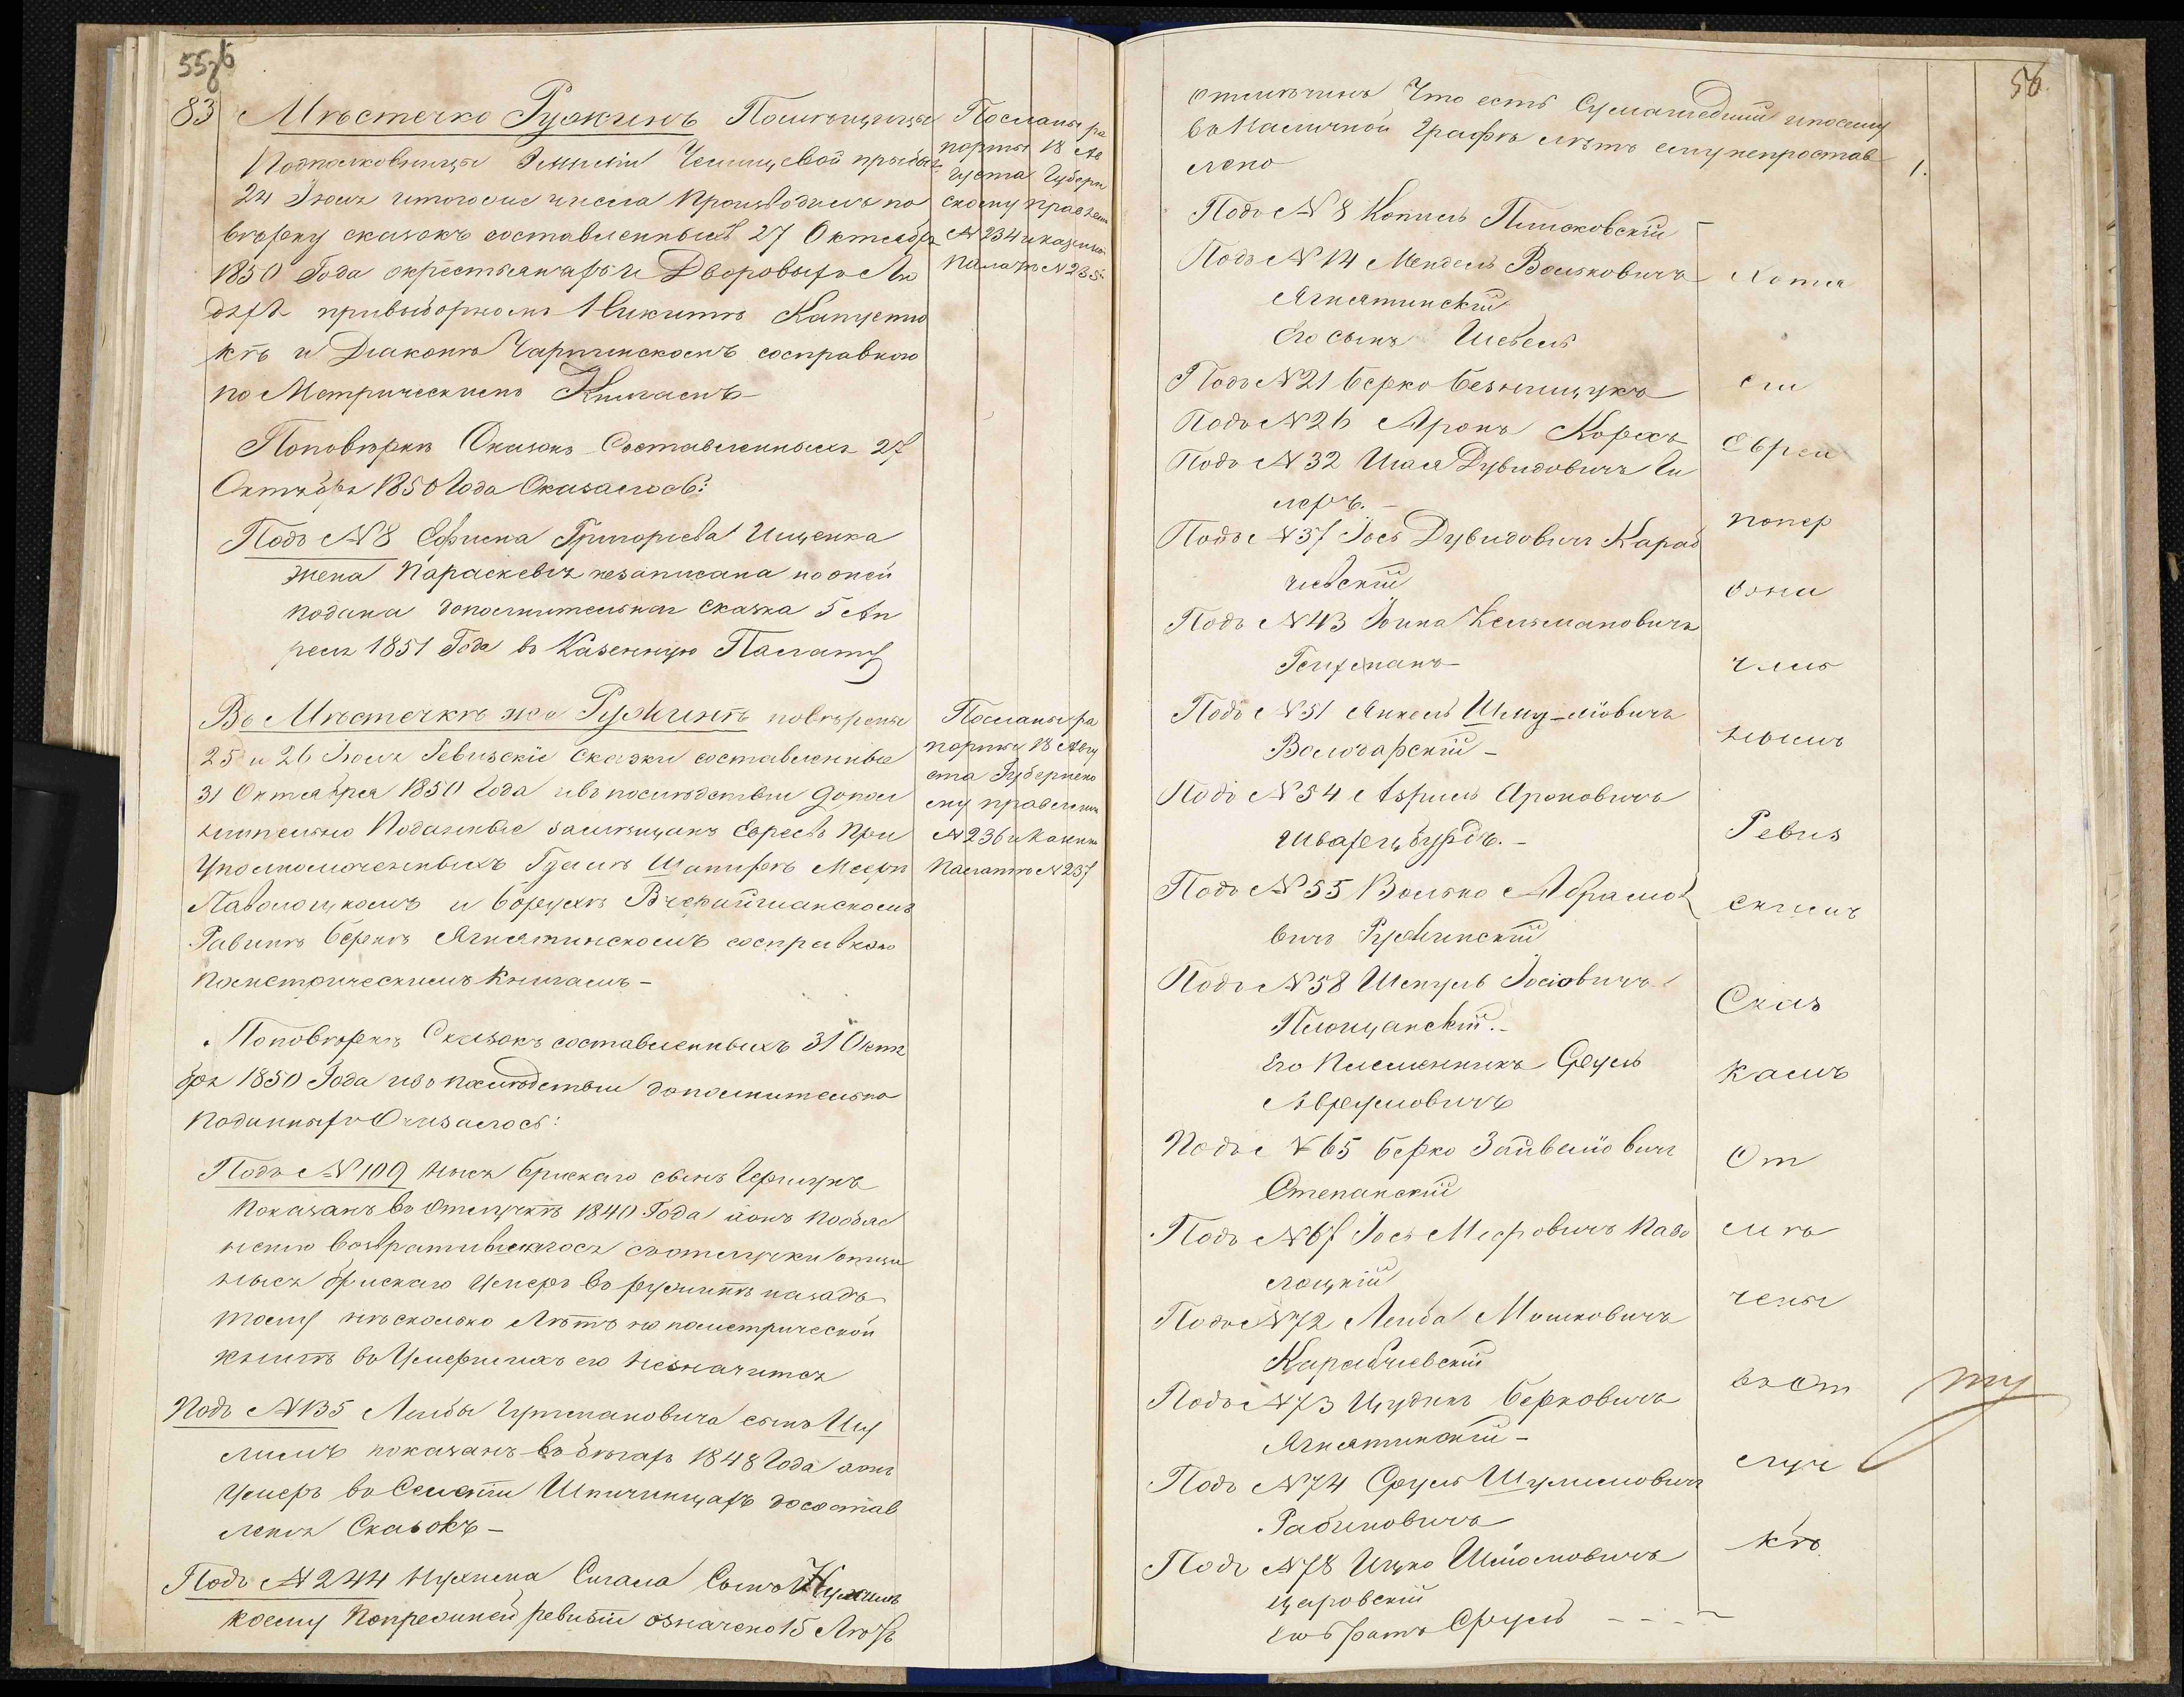 55 об
83 Мѣстечко Ружинъ Помѣщицы
Подполковницы Эмиліи прибыл
24 Іюля и того же числа производилъ по
вѣрку сказокъ составленныхъ 27 Октября
1850 Года о крестьянахъ и Дворовыхъ Лю
дяхъ при выборномъ Никитѣ Капустня
кѣ и Дьяконѣ Чарнинскомъ со справкою
по Метрическимъ Книгамъ –
Посланы ра
порты 18 Ав
густа Губерн
скому правлен
№ 234 и казенной
Палатѣ № 235.
По повѣркѣ Сказокъ Составленныхъ 27
Октября 1850 Года Оказалось:
Подъ № 8 Ефима Григорьева Ищенка
жена Параскевія незаписана но о ней
подана дополнительная сказка 5 Ап
реля 1851 Года въ Казенную Палату
Въ Мѣстечкѣ же Ружинѣ повѣрены
25 и 26 Іюля Ревизскіе сказки составленные
31 Октября 1850 Года и въ послѣдствіи допол
нительно Поданные о мѣщанъ Евреевъ При
Уполномоченныхъ Гдалѣ Шапирѣ Меерѣ
Паволоцкомъ и Борухѣ
Равинѣ Беркѣ Ягнятинскомъ со справкою
по метрическимъ Книгамъ –
Посланы ра
порты 18 Авгу
ста Губернско
му правлению
№ 236 и Казенн
Палатѣ № 237
По повѣркѣ Сказокъ составленныхъ 31 Октя
бря 1850 Года и въ послѣдствіи дополнительно
поданныхъ Оказалось:
Подъ № 109 Мыся Брискаго сынъ Гершунъ
Показанъ въ отлучкѣ 1840 Года а онъ по объяс
ненію возвратившагося съ отлучки отца
Мыся Брискаго умеръ въ Ружинѣ назадъ
тому нѣсколько Лѣтъ но по метрической
книгѣ въ Умершихъ его незначится
Подъ № 135 Лейбы Гутмановича сынъ Шу
лимъ показанъ въ бѣгахъ 1848 Года а онъ
умеръ въ Селеніи Шпичинцахъ до состав
ленія Сказокъ –
Подъ № 244 Нухима Сигала Сынъ
коему По прежней ревизіи означено 15 Лѣтъ
56.
отмѣченъ Что есть Сумашедшій и посему
въ Наличной Графѣ лѣтъ ему непростав
лено
1.
Подъ № 8 Копель Плисковскій
Подъ № 14 Мендель Вольковичъ
Ягнятинскій
Его сынъ Шевель
Подъ № 21 Берко
Подъ № 26 Аронъ Корехъ
Подъ № 32 Шая Дувидовичъ Ги
леръ. –
Подъ № 37 Іось Дувидовичъ Караб
чіевскій
Подъ № 43 Іоина Кельмановичъ
Гейхманъ –
Подъ № 51 Янкель Шмуліовичъ
Володарскій –
Подъ № 54 Азриль Ароновичъ
Шварцбурдъ. –
Подъ № 55 Волько Абрамо
вичъ Ружинскій
Подъ № 58 Шепсуль Іосіовичъ
Площанскій. –
Его Племянникъ Сруль
Аврумовичъ
Подъ № 65 Берко Зайвеліовичъ
Степанскій
Подъ № 67 Іось Меировичъ Паво
лоцкій
Подъ № 72 Лейба Мошковичъ
Карабчіевскій
Подъ № 73 Ицудикъ Берковичъ
Ягнятинскій –
Подъ № 74 Сруль Шулимовичъ
Рабиновичъ
Подъ № 78 Ицко Шлiомовичъ
Щаровскій
Его братъ Сруль – – –
Хотя
сіи
Евреи
попер
вона
чаль
нымъ
Ревиз
скимъ
Сказ
камъ
От
мѣ
чены
въ от
луч
кѣ